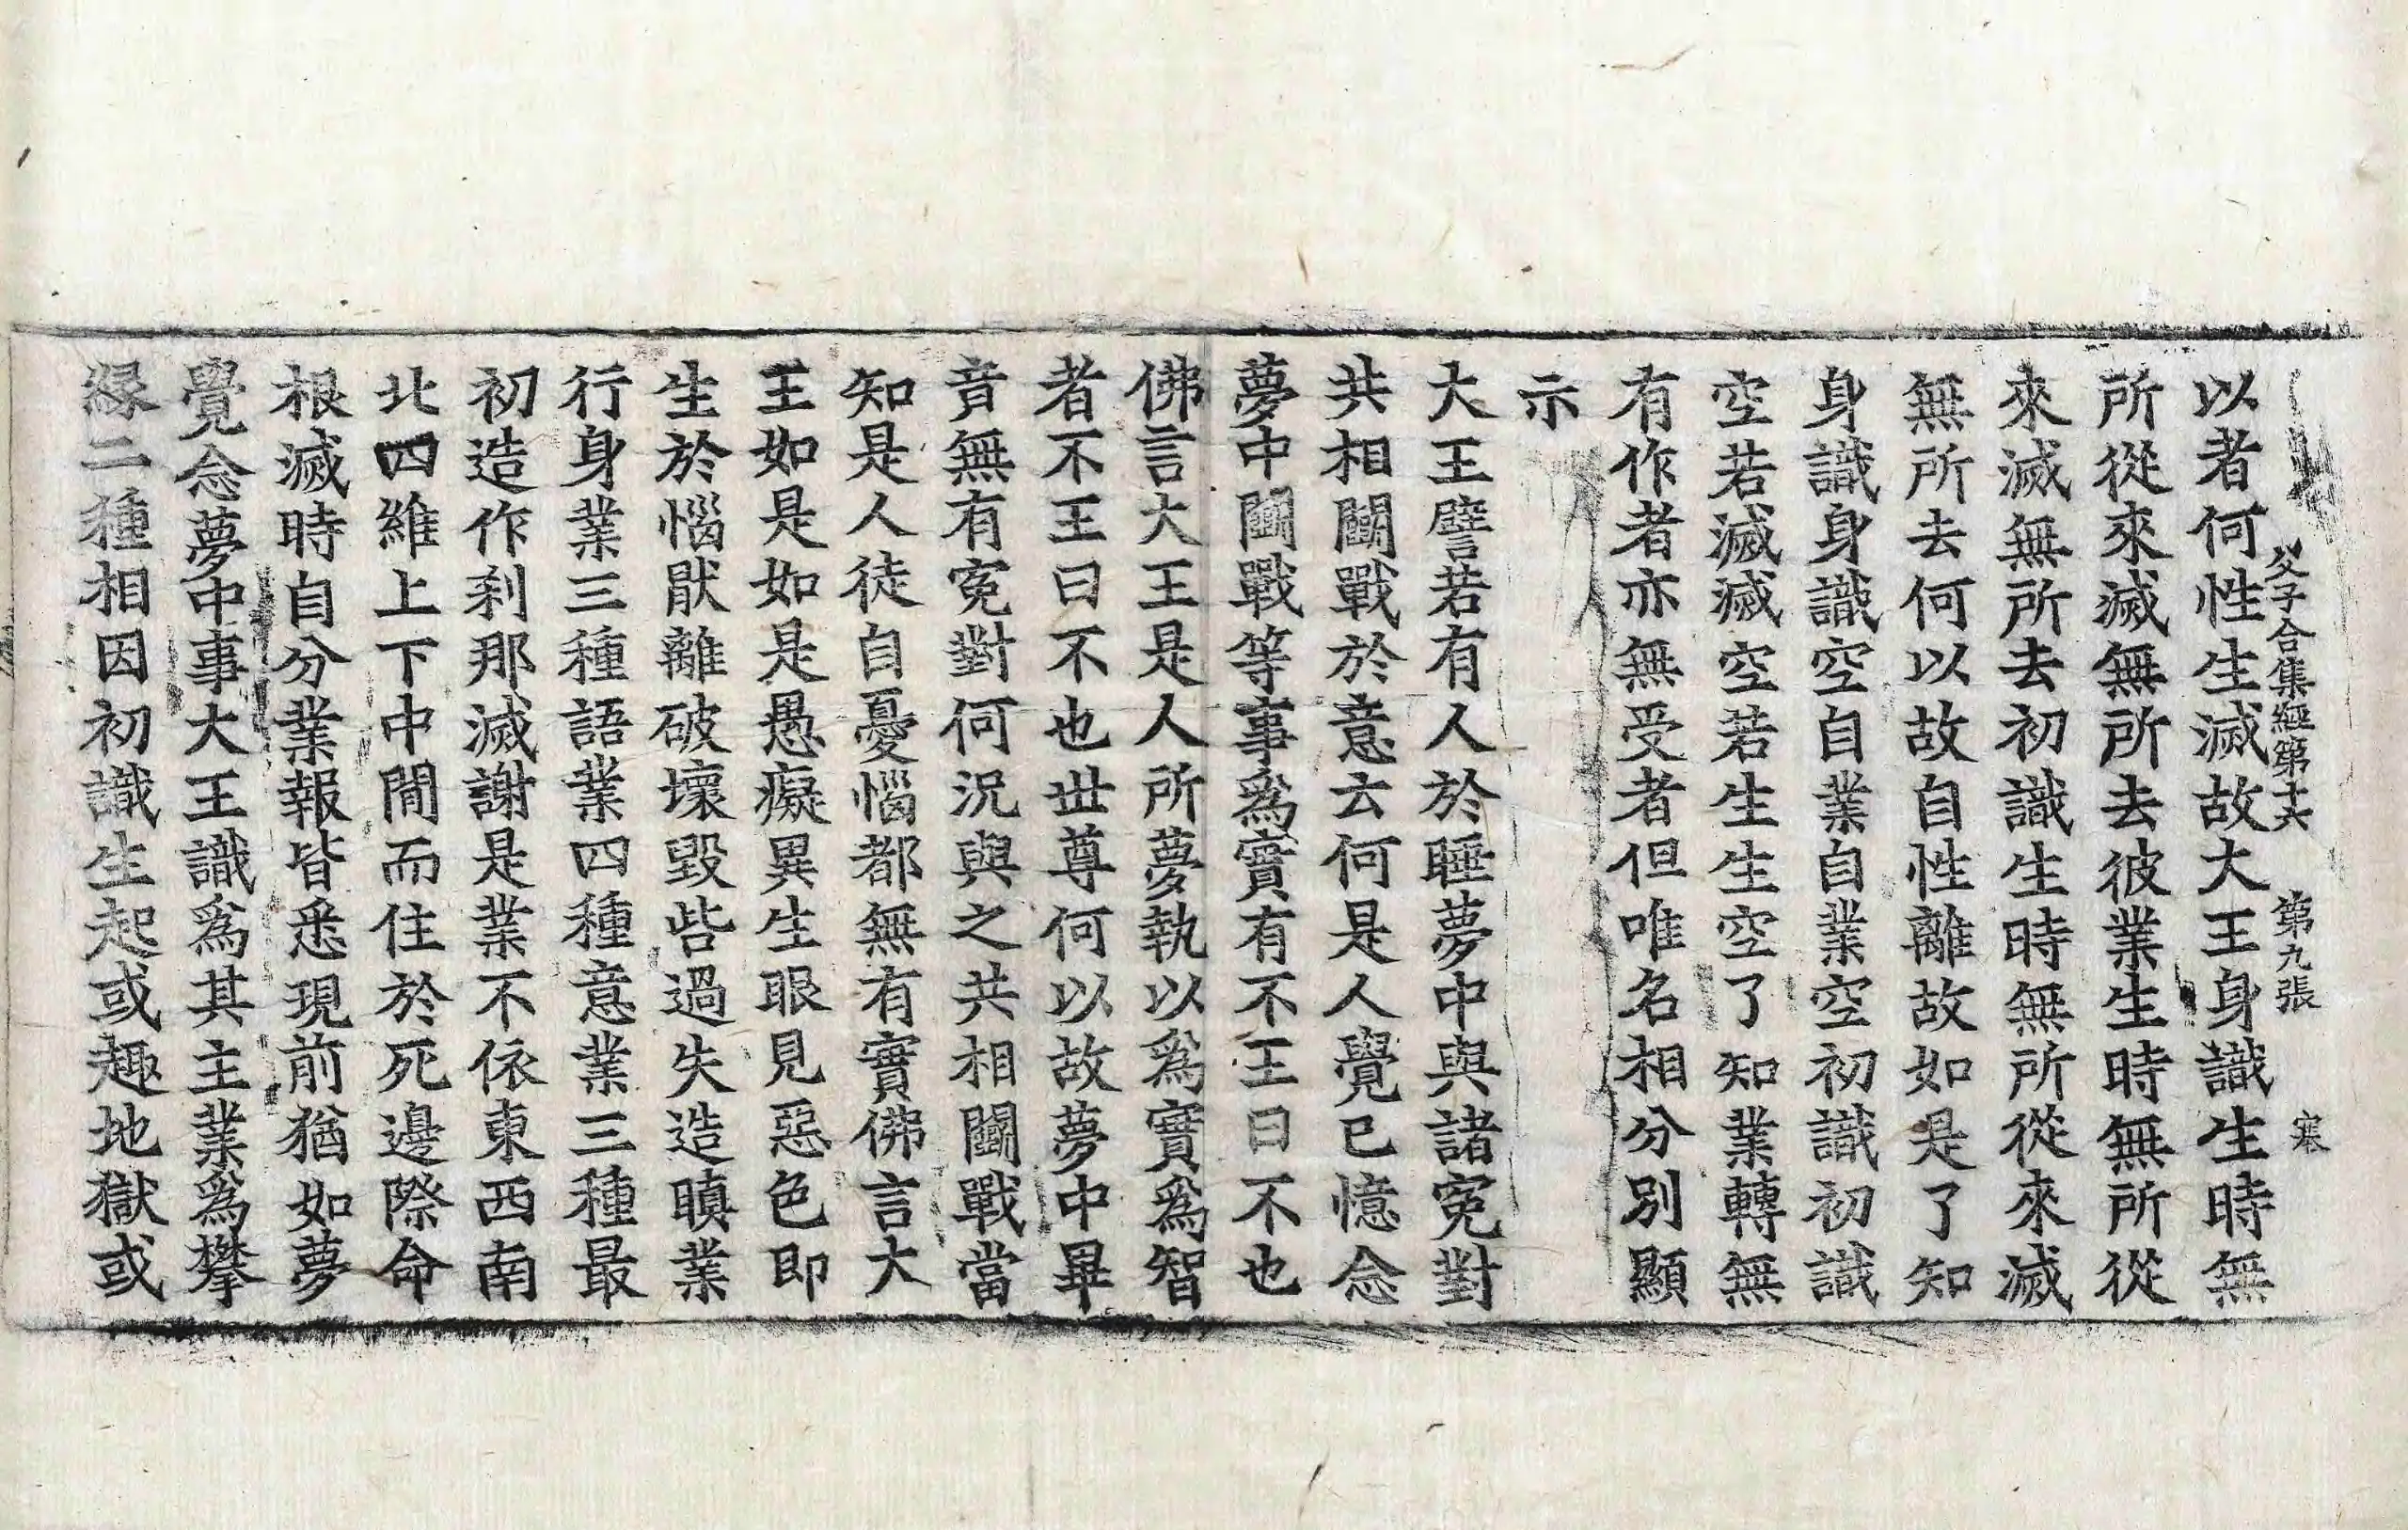 父子合集經第十六 第九張 寒
以者何性生滅故大王身識生時無
所從來滅無所去彼業生時無所從
來滅無所去初識生時無所從來滅
無所去何以故自性離故如是了知
身識身識空自業自業空初識初識
空若滅滅空若生生空了知業轉無
有作者亦無受者但唯名相分別顯
示
大王譬若有人於睡夢中與諸寃對
共相鬪戰於意云何是人覺已憶念
夢中鬪戰等事爲實有不王曰不也
佛言大王是人所夢執以爲實爲智
者不王曰不也世尊何以故夢中畢
竟無有寃對何況與之共相鬪戰當
知是人徒自憂惱都無有實佛言大
王如是如是愚癡異生眼見惡色即
生於惱猒離破壞毀呰過失造瞋業
行身業三種語業四種意業三種最
初造作刹那滅謝是業不依東西南
北四維上下中間而住於死邊際命
根滅時自分業報皆悉現前猶如夢
覺念夢中事大王識爲其主業爲攀
緣二種相因初識生起或趣地獄或